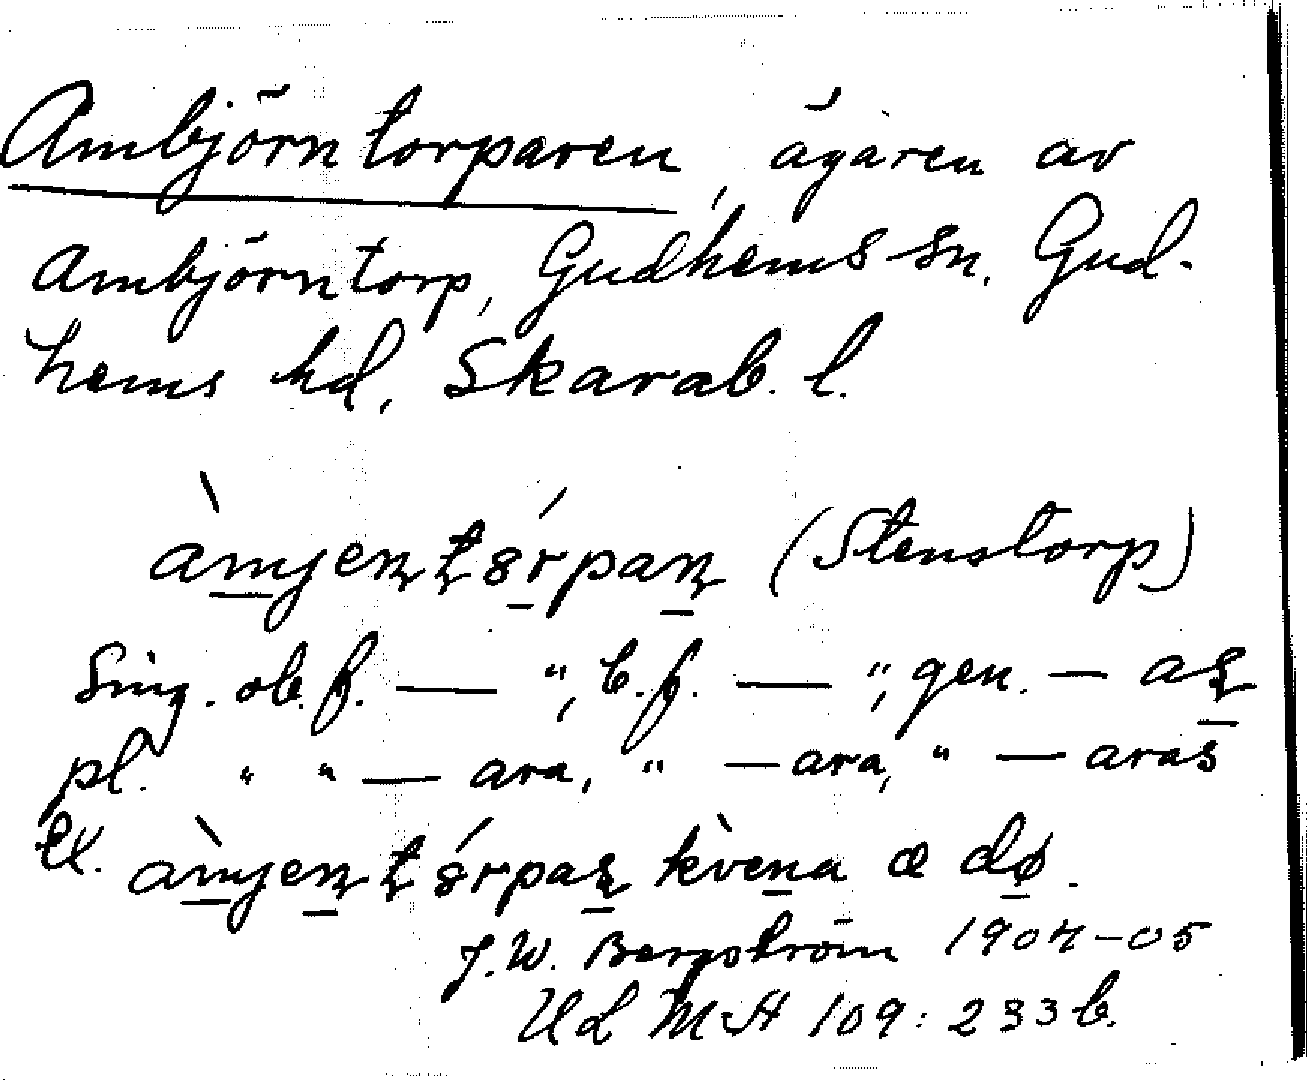 Ambjörntorparen, ägaren av
Ambjörntorp, Gudhems sn. Gud-
hems hd, Skarab. l.
àmjenʈśrpaɳ (Stenstorp)
Sing. ob. f. — ", b. f. — ", gen. — aʂ
pl. " " — ara, " — ara, " — aras
Ex. àmjeɳʈśrpaʂ kvèna æ dø.
J. W. Bergström 1904-05
Ud MA 109: 233 b.